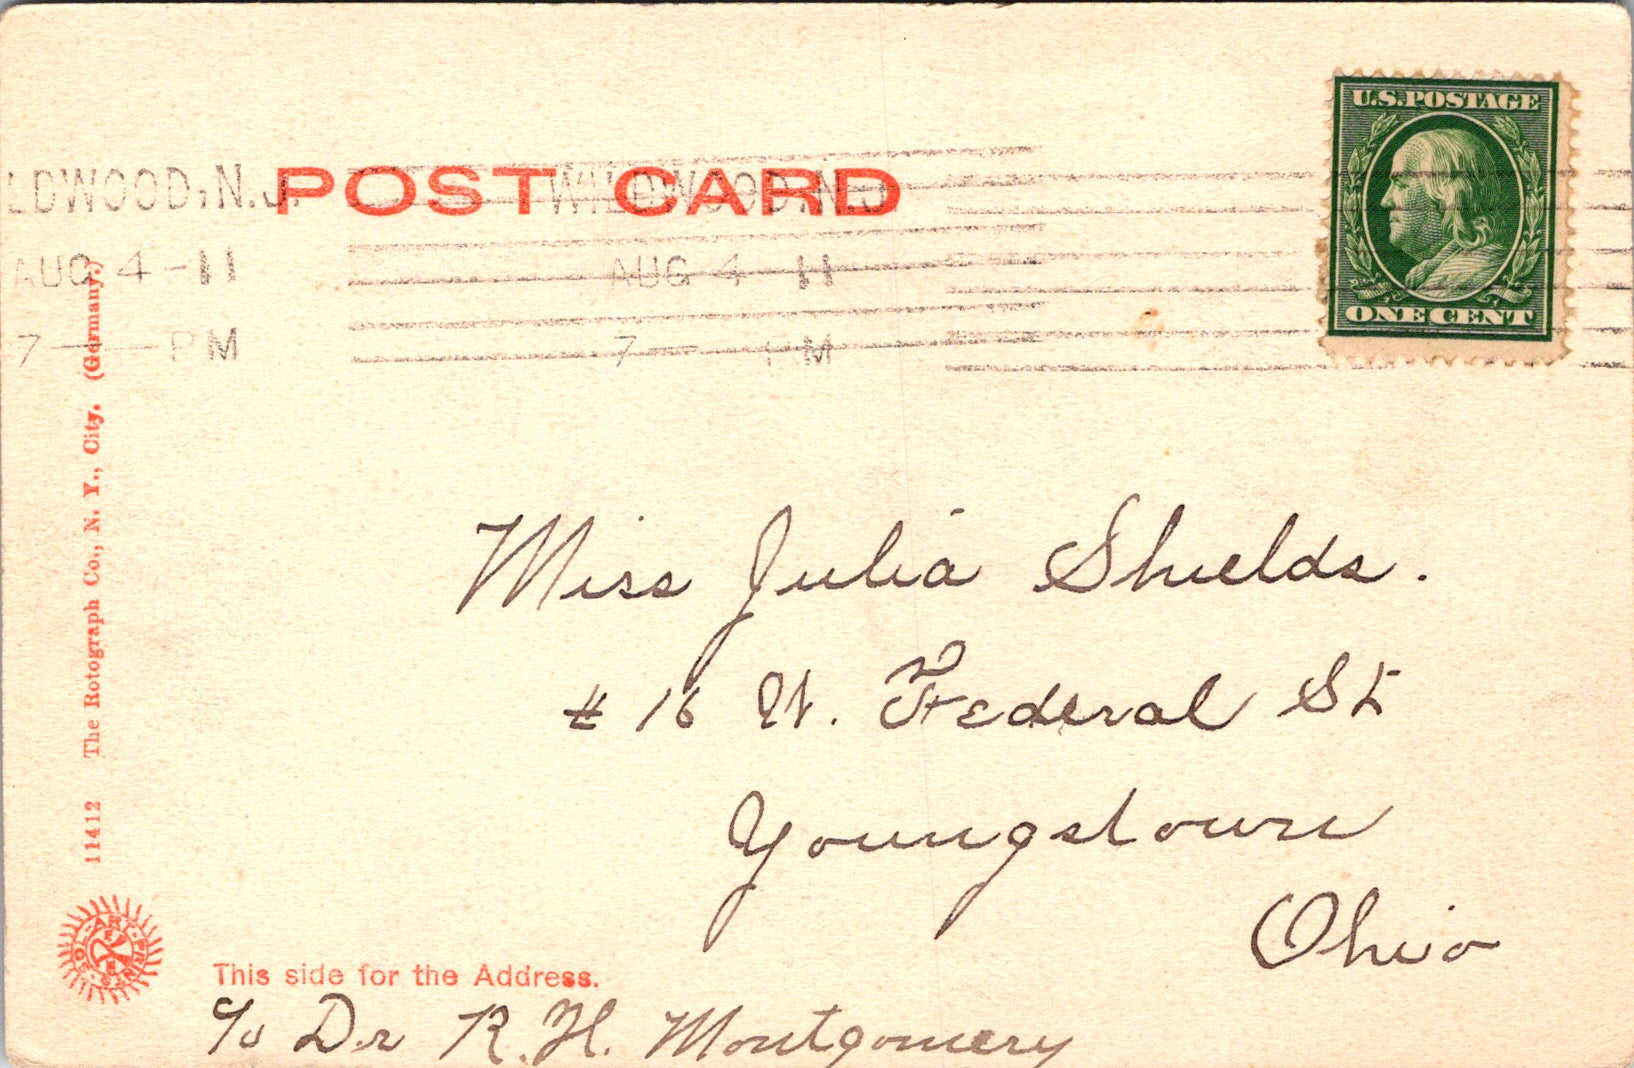 U.S. POSTAGE
ONE CENT
POST CARD
LDWOOD, N.J. WILDWOOD, N.J.
AUG 4 - 11 AUG 4 11
7 — PM 7 — PM
Miss Julia Shields.
# 16 W. Federal St
Youngstown
Ohio
This side for the Address.
c/o Dr R. H. Montgomery
11412 The Rotograph Co., N. Y., City. (Germany.)
SOL-ART-PRINTS